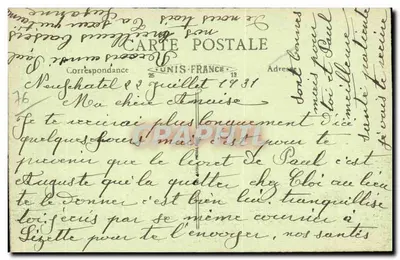 CARTE POSTALE
Correspondance
UNIS-FRANCE
Adres
76
Neufchatel 22 Juillet 1931
Ma chère Anaïse
Je te recrirai plus longuement d'ici
quelques jours mais c'est pour te
prevenir que le livret de Paul c'est
Auguste qui la quetter chez Cloi au lieu
te le donner c'est bien lui. tranquillise
toi. j'ecris par se même courrier à
Lizette pour te l'envoyer, nos santés
sont bonnes
mais pour
toi et Paul
meilleure
santé
je vais te recrire
Je
nous
nos
meilleurs baisers
ta soeur
Suzanne
Paul
CARTEPOSTALE